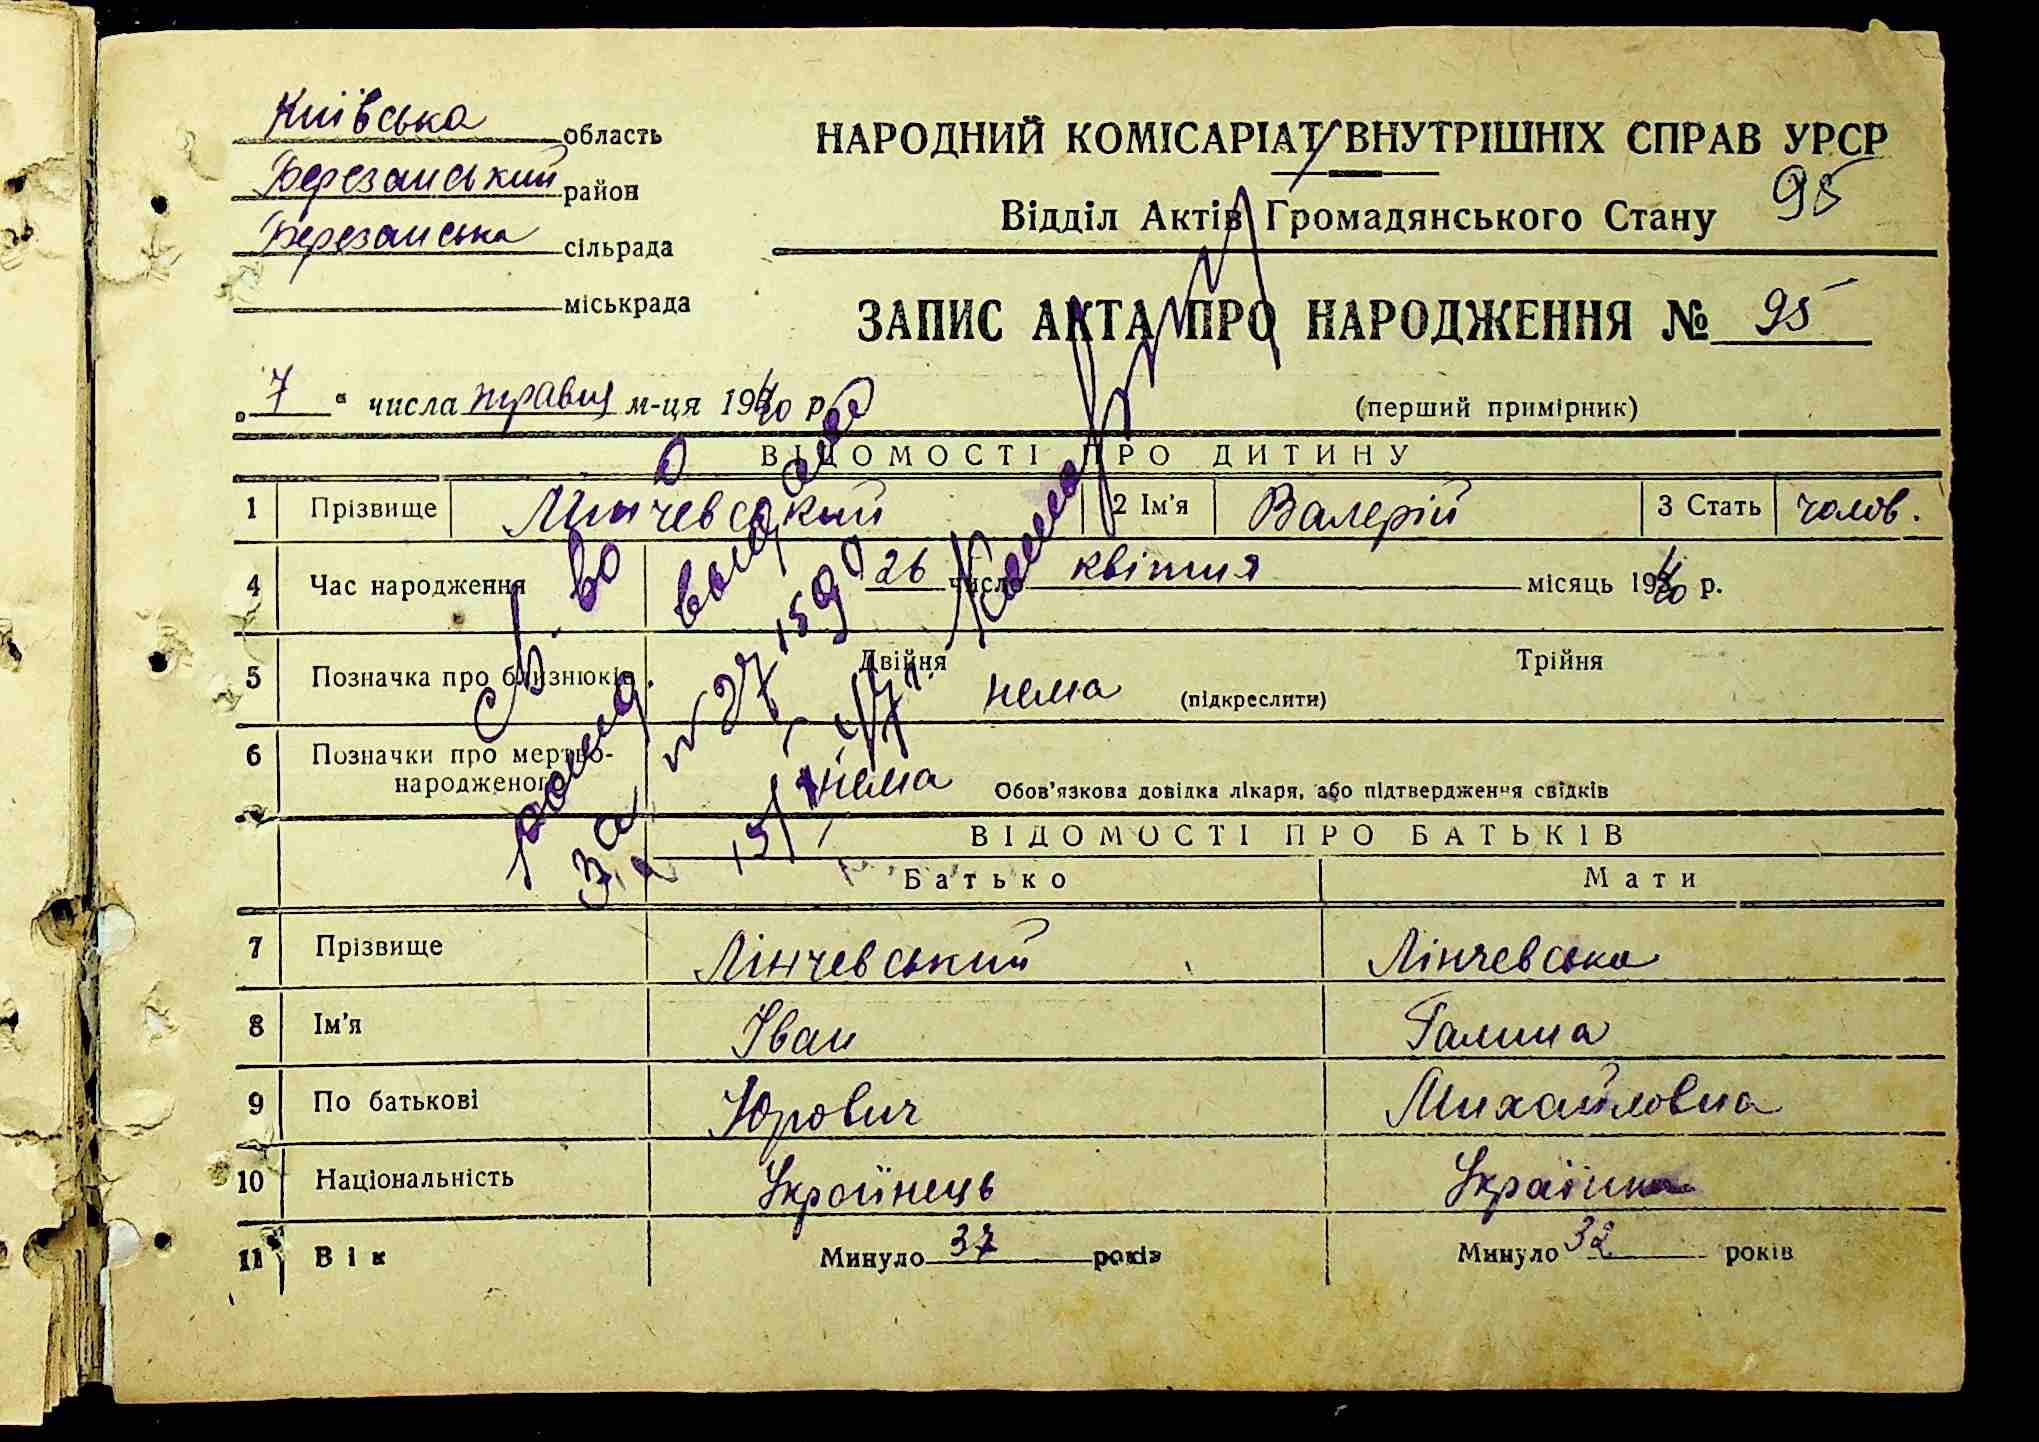 Київська область
Березанський район
Березанська сільрада
міськрада
НАРОДНИЙ КОМІСАРІАТ ВНУТРІШНІХ СПРАВ УРСР
Відділ Актів Громадянського Стану 95
ЗАПИС АКТА ПРО НАРОДЖЕННЯ № 95
„7“ числа травня м-ця 1940 р.
(перший примірник)
ВІДОМОСТІ ПРО ДИТИНУ
1 Прізвище Лінчевський 2 Ім'я Валерій 3 Стать чолов.
4 Час народження 26 число квітня місяць 1940 р.
5 Позначка про близнюків. Двійня нема (підкреслити) Трійня
6 Позначки про мертво-
народженого нема Обов'язкова довідка лікаря, або підтвердження свідків
Св. во о
рожд выдано
за №27
ВІДОМОСТІ ПРО БАТЬКІВ
Батько Мати
7 Прізвище Лінчевський Лінчевська
8 Ім'я Іван Галина
9 По батькові Юрович Михайловна
10 Національність Українець Українка
11 Вік Минуло 37 років Минуло 32 років